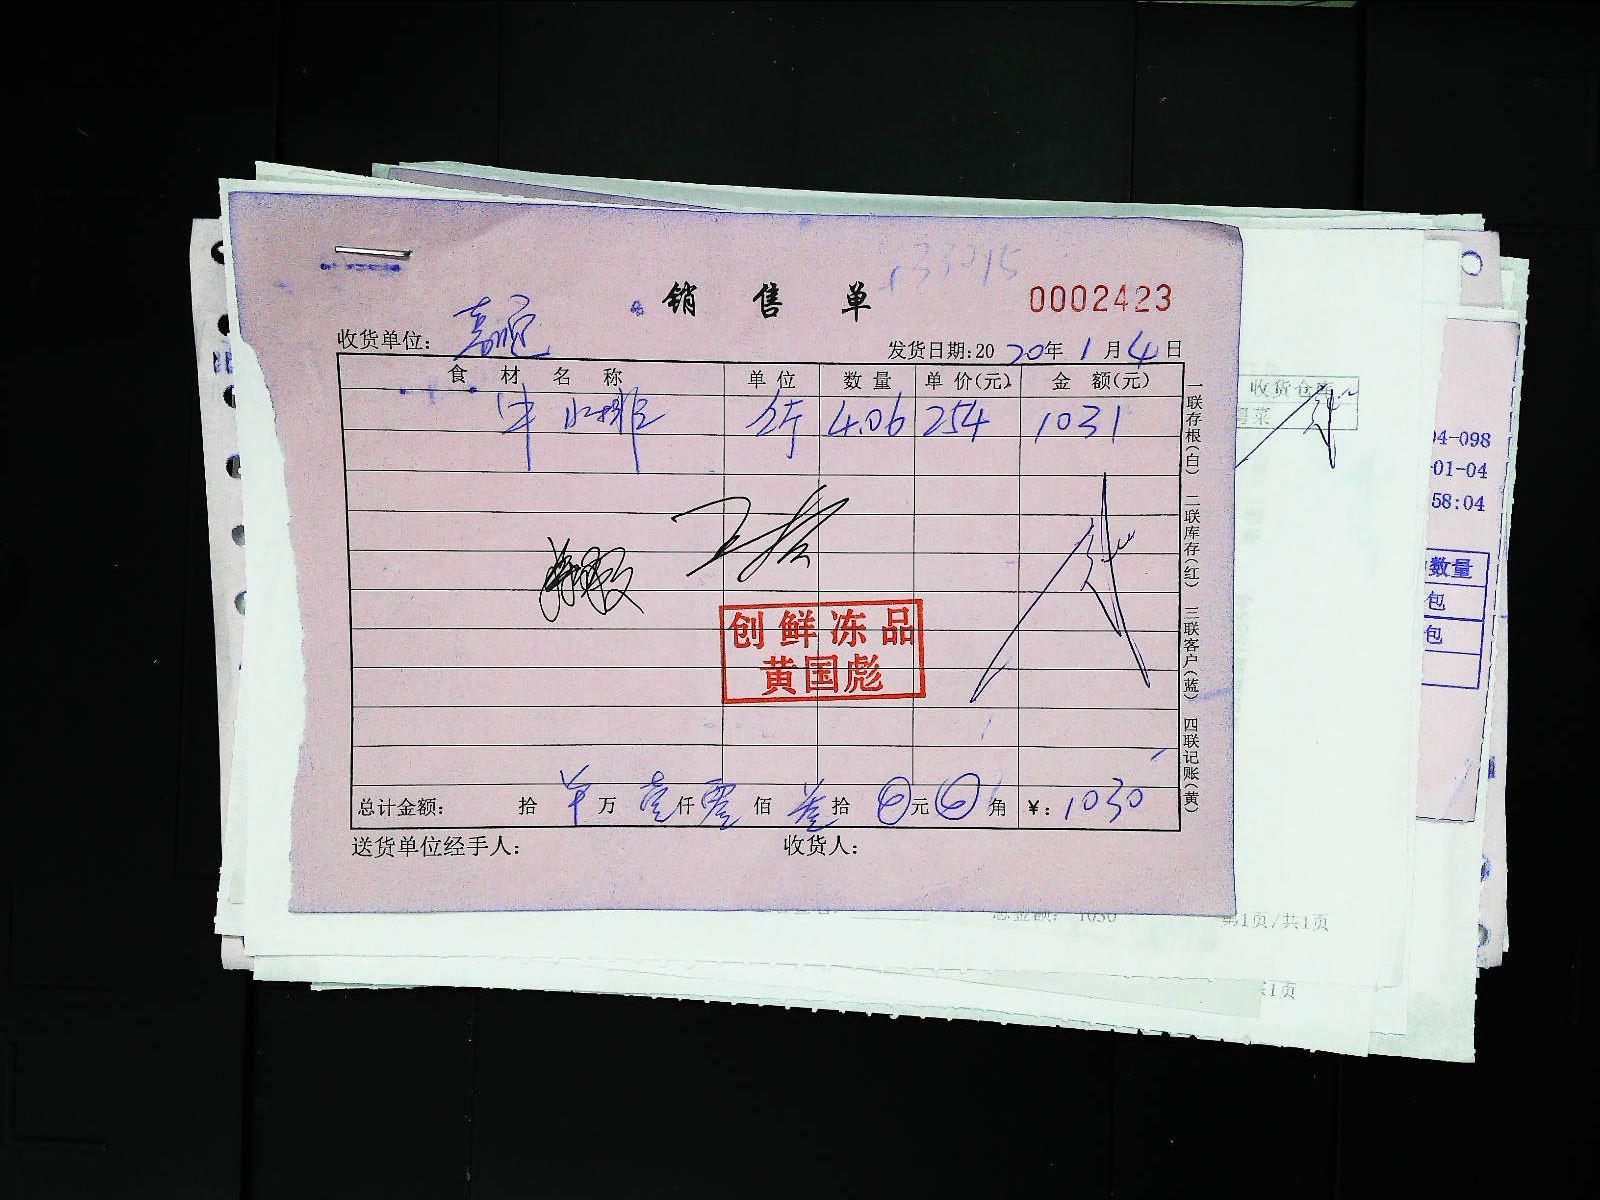 销售单
0002423
收货单位：
发货日期:2020年1月4日
食材名称 单位 数量 单价(元) 金额(元)
牛小排 公斤 4.06 254 1031
创鲜冻品
黄国彪
总计金额： 拾 万 壹仟零佰叁拾 元 角 ￥：1030
送货单位经手人： 收货人：
一联存根(白) 二联库存(红) 三联客户(蓝) 四联记账(黄)
收货仓
菜
04-098
-01-04
58:04
数量
包
包
总金额： 1030
第1页/共1页
1页